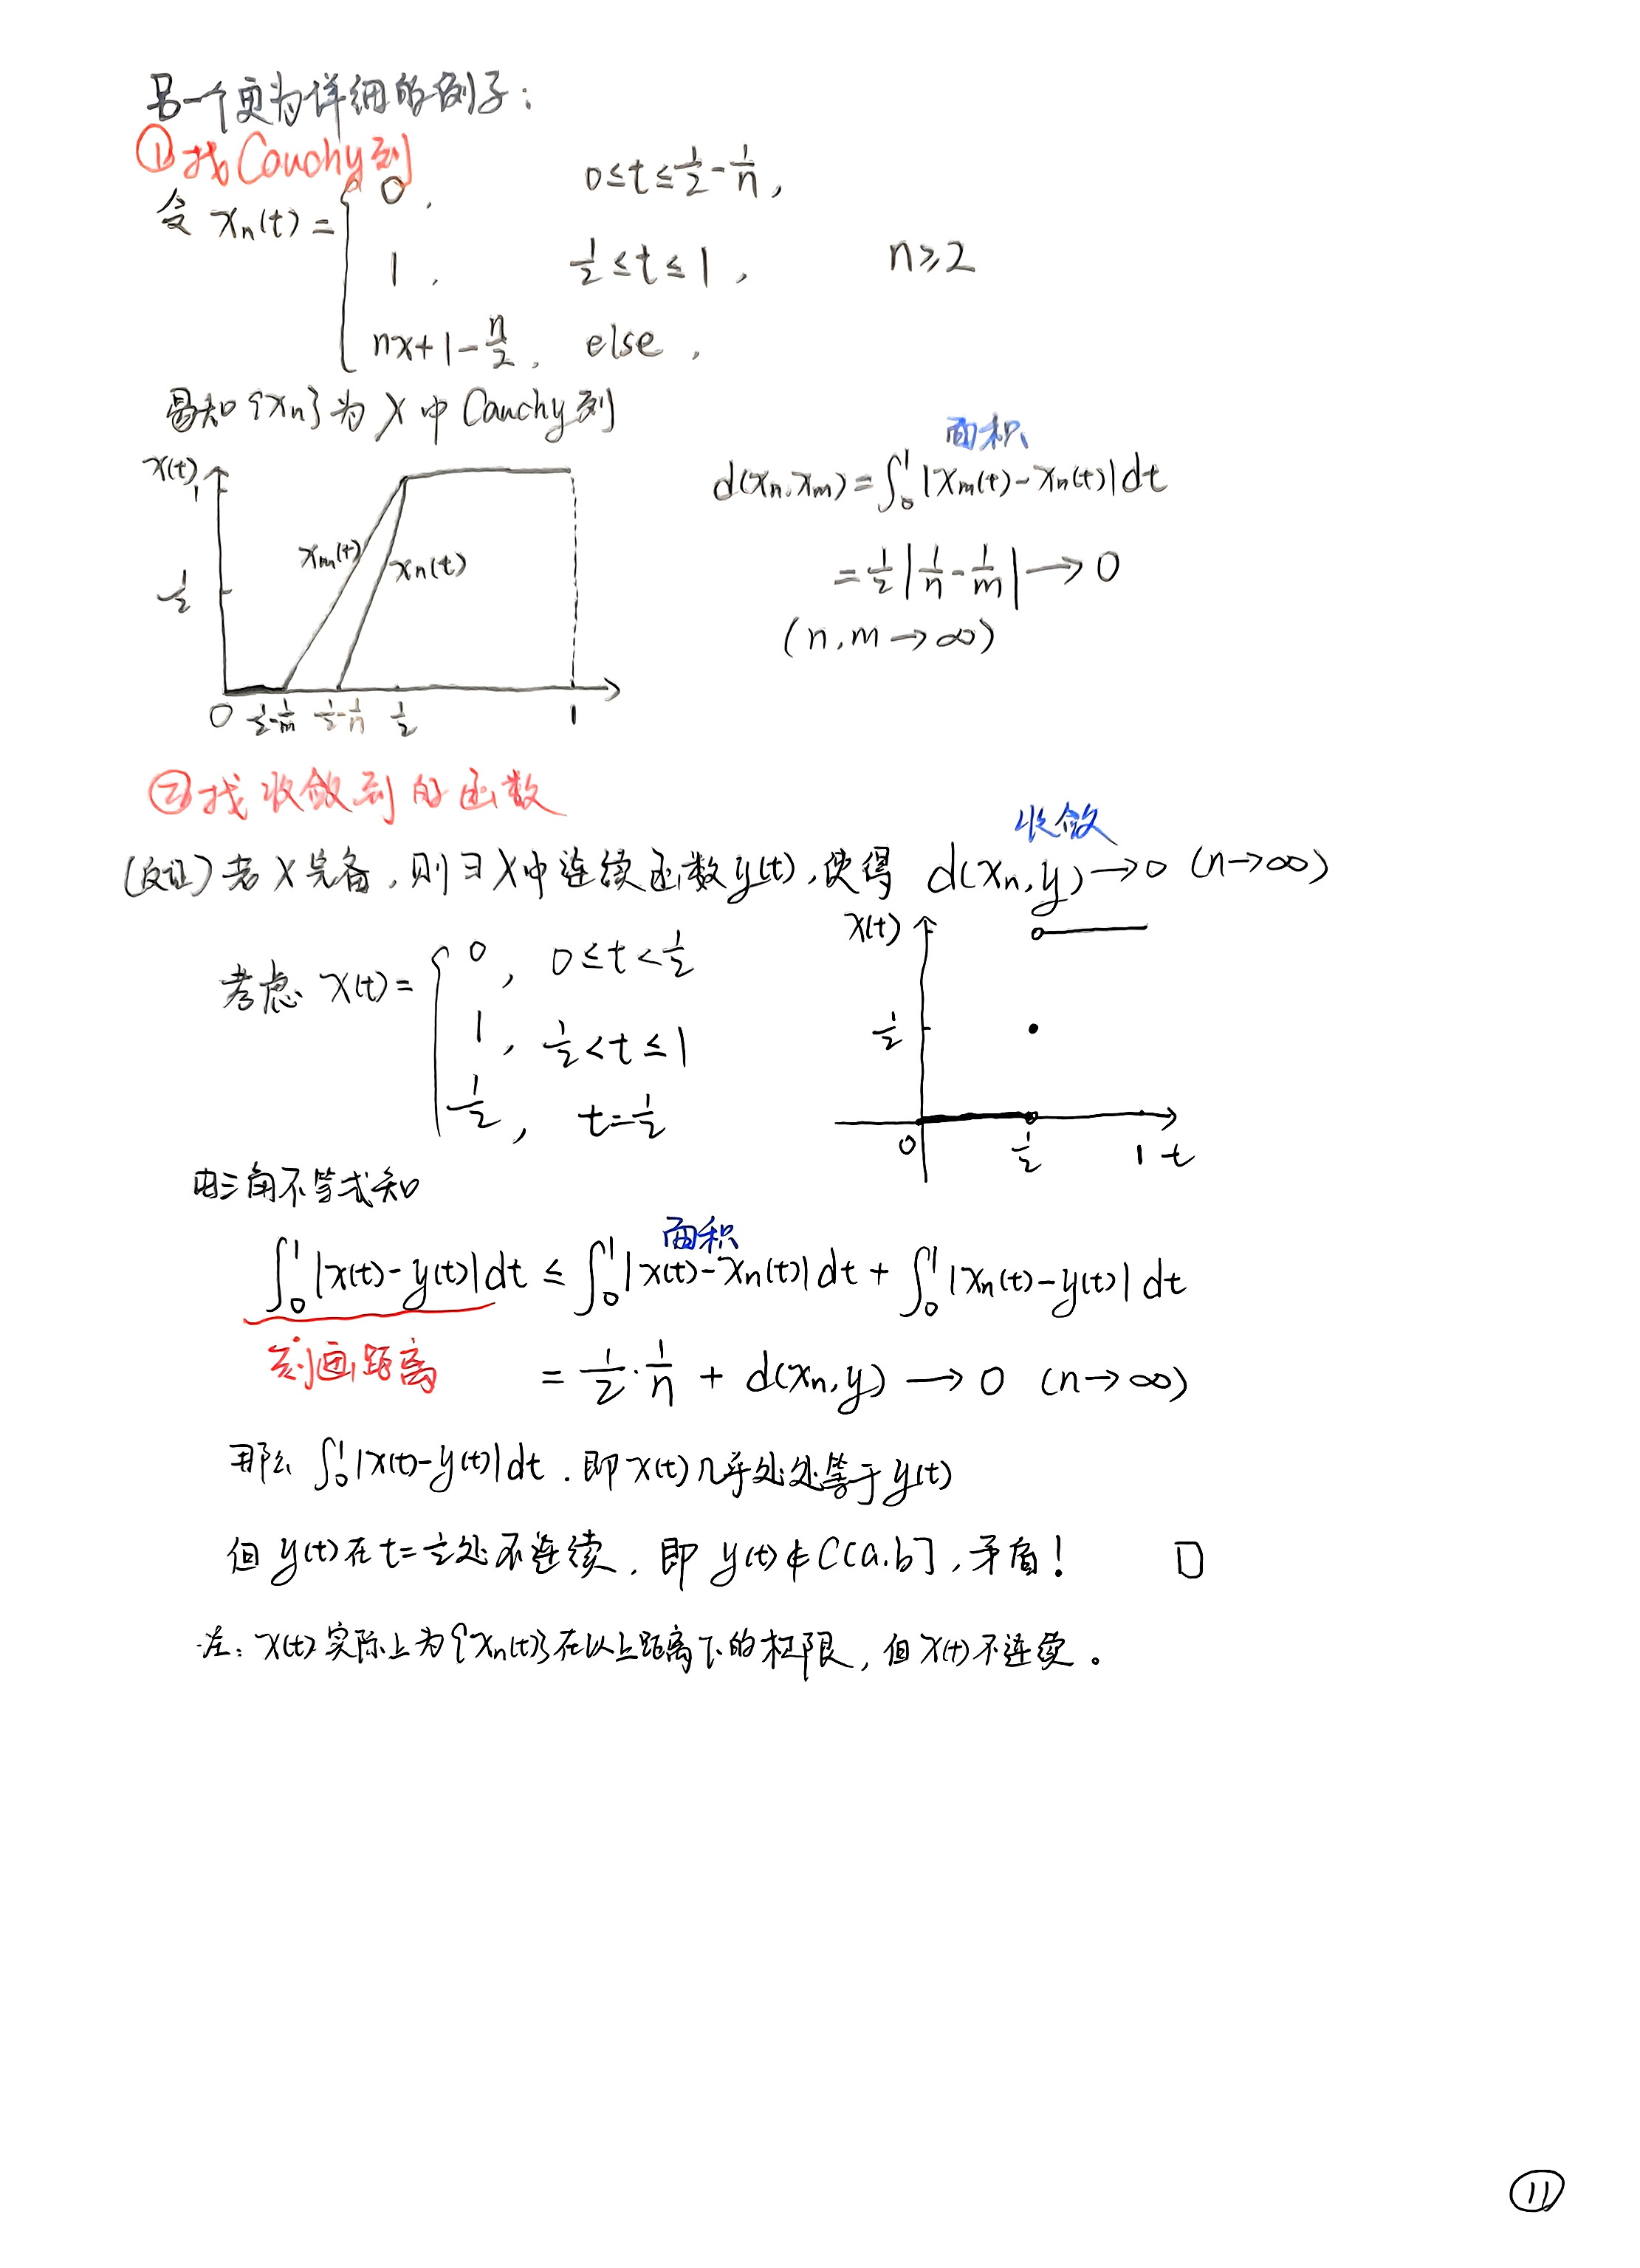 另一个更为详细的例子：
①找Cauchy列
令 xₙ(t) = { 0, 0≤t≤1/2-1/n,
1, 1/2≤t≤1, n≥2
nx+1-n/2, else,
易知{xₙ}为X中Cauchy列
面积
d(xₙ,xₘ)=∫₀¹|xₘ(t)-xₙ(t)|dt
=1/2|1/n-1/m|→0
(n,m→∞)
x(t)
1
xₘ(t) xₙ(t)
1/2
0 1/2-1/m 1/2-1/n 1/2 1
②找收敛到的函数
收敛
(反证)若X完备,则∃X中连续函数y(t),使得 d(xₙ,y)→0 (n→∞)
考虑 x(t)= { 0, 0≤t<1/2
1, 1/2<t≤1
1/2, t=1/2
x(t)
1/2
0 1/2 1 t
由三角不等式知
面积
∫₀¹|x(t)-y(t)|dt ≤ ∫₀¹|x(t)-xₙ(t)|dt + ∫₀¹|xₙ(t)-y(t)|dt
刻画距离
= 1/2·1/n + d(xₙ,y) → 0 (n→∞)
那么 ∫₀¹|x(t)-y(t)|dt.即x(t)几乎处处等于y(t)
但y(t)在t=1/2处不连续,即 y(t)∉C[a,b],矛盾! □
注:x(t)实际上为{xₙ(t)}在以上距离下的极限,但x(t)不连续。
11